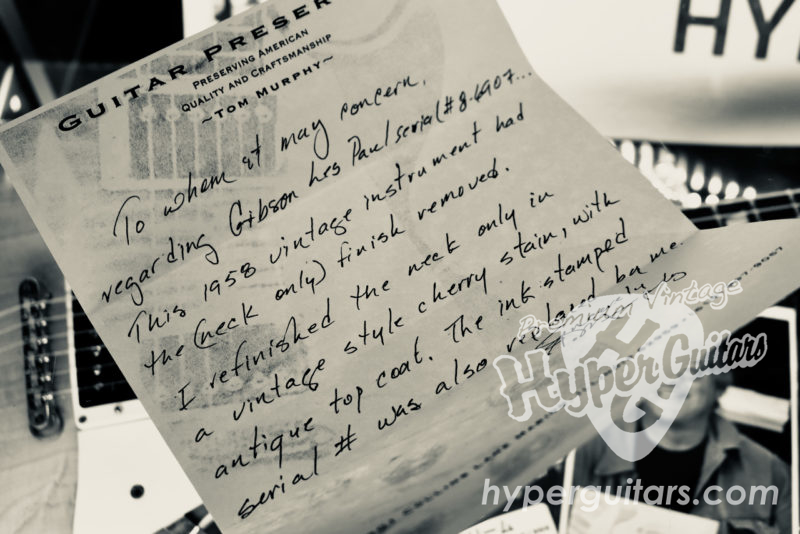 GUITAR PRESER
PRESERVING AMERICAN
QUALITY AND CRAFTSMANSHIP
~TOM MURPHY~
To whom it may concern,
regarding Gibson Les Paul serial (#8-6907...
This 1958 vintage instrument had
the (neck only) finish removed.
I refinished the neck only in
a vintage style cherry stain, with
antique top coat. The ink stamped
serial # was also replaced by me.
HY
Premium Vintage
Hyper Guitars
hyperguitars.com